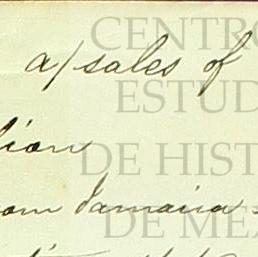 a/sales of
lion
from Jamaica
CENTRO
ESTUD
DE HIST
DE MÉX